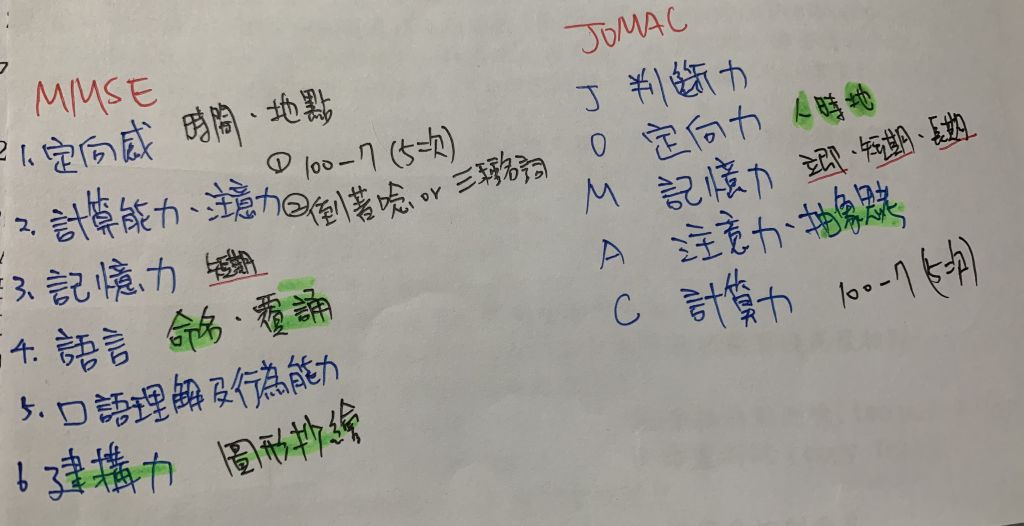 MMSE
1. 定向感 時間、地點
2. 計算能力、注意力 ① 100-7 (5次)
② 倒著唸 or 三種名詞
3. 記憶力 短期
4. 語言 命名、覆誦
5. 口語理解及行為能力
6 建構力 圖形抄繪
JOMAC
J 判斷力
O 定向力 人時地
M 記憶力 立即、短期、長期
A 注意力、抽象思考
C 計算力 100-7 (5次)